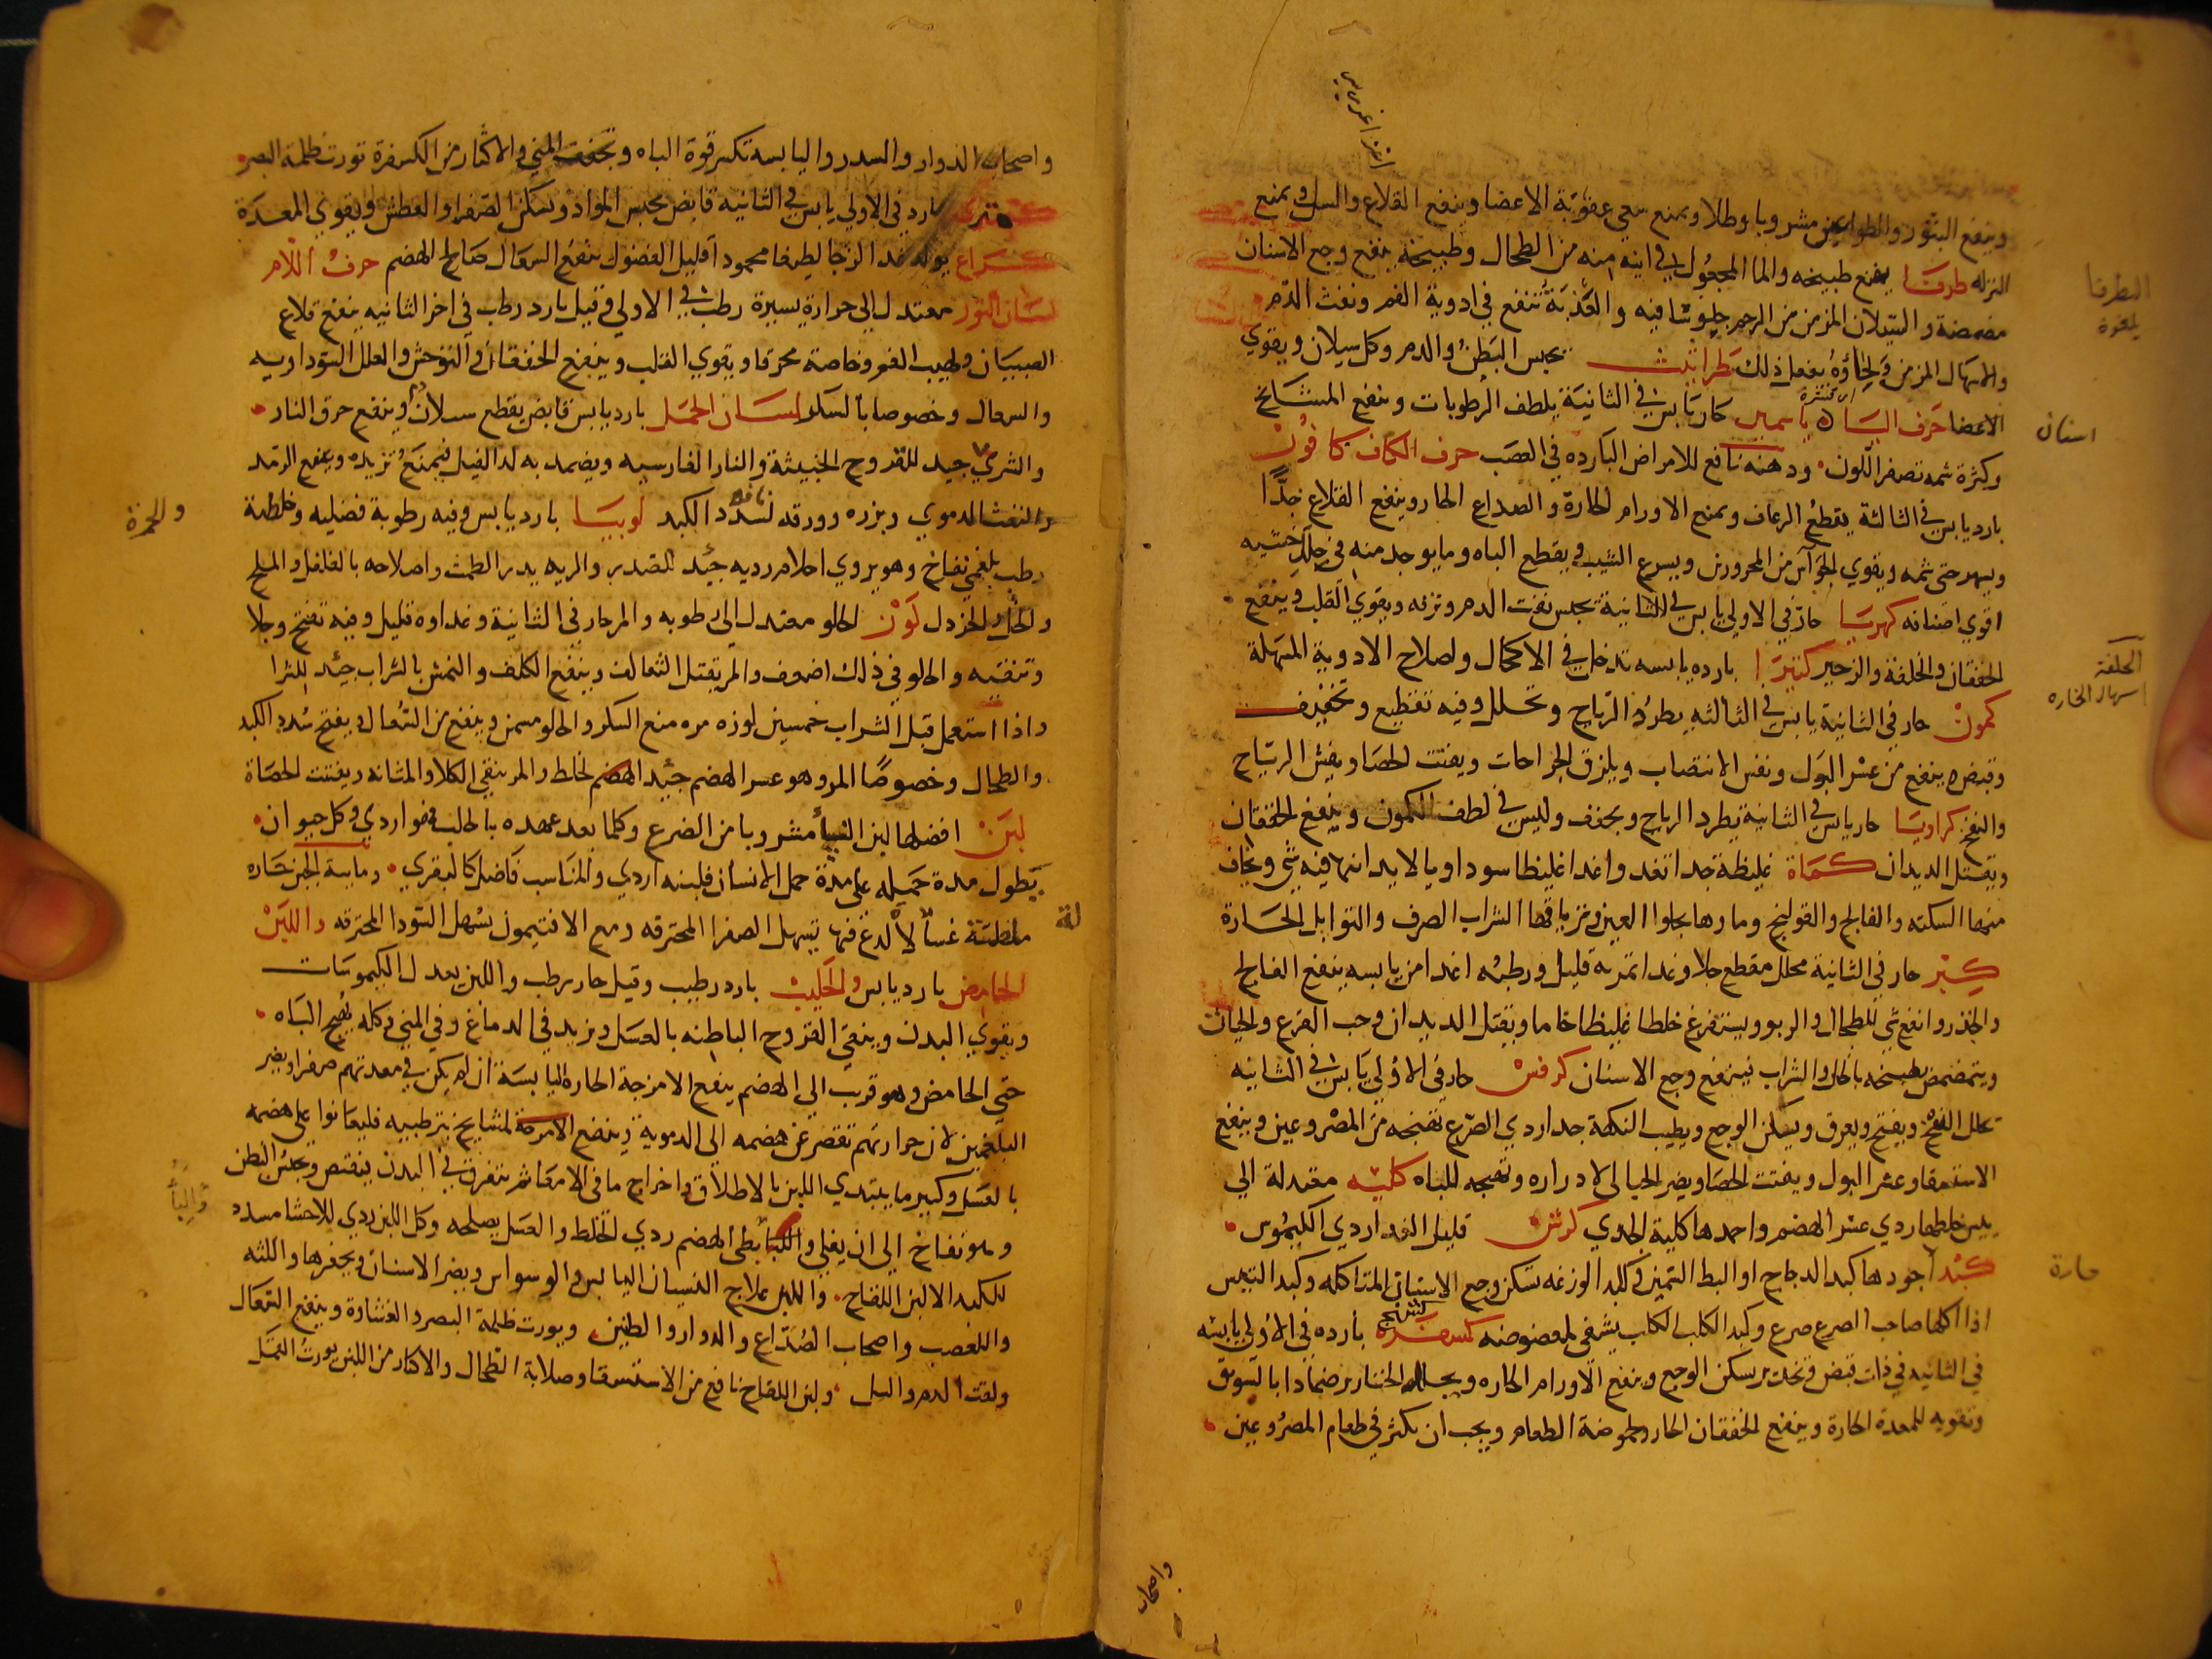 وينفع البثور والطواعين مشروبا وطلا ويمنع سعي عفونة الاعضا وينفع القلاع والسل ويمنع
النزله طرفا ينفع طبيخه والما المجعول في انيه منه من الطحال وطبيخه ينفع وجع الاسنان
مضمضة والسيلان المزمن من الرحم جلوسا فيه والعذبة تنفع في ادوية الفم ونفث الدم
والاسهال المزمن ولحاؤه يفعل ذلك طراثيث يحبس البطن والدم وكل سيلان ويقوي
الاعضا حرف اليا ياسمين حار يابس في الثانية يلطف الرطوبات وينفع المشايخ
وكثرة شمه تصفر اللون ودهنه نافع للامراض الباردة في العصب حرف الكاف كافور
بارد يابس في الثالثة يقطع الرعاف ويمنع الاورام الحارة والصداع الحار وينفع القلاع جدا
ويسهر حتى شمه ويقوي الحواس من المحرورين ويسرع الشيب ويقطع الباه وما يوجد منه في خلل خشبه
اقوي اصنافه كهربا حار في الاولي يابس في الثانية يحبس نفث الدم ونزفه ويقوي القلب وينفع
الخفقان والخلفة والزحير كثيرا بارده يابسه تدخل في الاكحال ولصلاح الادوية المسهلة
كمون حار في الثانية يابس في الثالثه يطرد الرياح ويحلل وفيه تقطيع وتجفيف
وقبض وينفع من عسر البول ونفس الانتصاب ويلزق الجراحات ويفتت الحصا ويفش الرياح
والنفخ كراويا حار يابس في الثانية يطرد الرياح ويجفف وليس في لطف الكمون وينفع الخفقان
ويقتل الديدان كماة غليظة جدا تغدوا غدا غليظا سوداويا لا يدانيها فيه شي ويخاف
منها السكته والفالج والقولنج وماوها يجلوا العين وترياقها الشراب الصرف والتوابل الحارة
كبر حار في الثانية محلل مقطع جلا وغدا ثمره قليل ورطبه اغدا من يابسه ينفع الفالج
والخدر وانفع شي للطحال والربو ويستفرغ خلطا غليظا خاما ويقتل الديدان وحب القرع والحيات
ويتمضمض بطبيخه بالخل والشراب فينفع وجع الاسنان كرفس حار في الاولي يابس في الثانيه
يحلل النفخ ويفتح ويعرق ويسكن الوجع ويطيب النكهة جدا ردي للصرع تهيجه من المصروعين وينفع
الاستسقا وعسر البول ويفتت الحصا ويضر الحبالى لادراره وتهيجه للباه كليه معتدلة الي
يبس خلطها ردي عسر الهضم واحمدها كلية الجدي كرش قليل الغدا ردي الكيموس
كبد اجودها كبد الدجاج او البط السمين وكبد الوزغه تسكن وجع الاسنان المتاكله وكبد التيس
اذا اكلها صاحب الصرع صرع وكبد الكلب الكلب يشفى لمعضوضه كسفرة بارده في الاولي يابسه
في الثانيه في ذات قبض وتخدير يسكن الوجع وينفع الاورام الحاره ويحلل الخنازير ضمادا بالسويق
وتقويه للمعدة الحارة وينفع الخفقان الحار وحموضة الطعام ويجب ان يكثر في طعام المصروعين
الطرفا
اسنان
الخلفة
اسهال
حارة
واصحاب
واصحاب الدوار والسدر واليابسه تكسر قوة الباه وتجفف المني والاكثار من الكسفرة تورث ظلمة البصر
بارد في الاولي يابس في الثانيه قابض يحبس المواد ويسكن الصفرا والعطش ويقوي المعدة
كراع يولد غدا لزجا لطيفا محمودا قليل الفضول ينفع السعال صالح الهضم حرف اللام
لسان الثور معتدل الي حرارة يسيرة رطب في الاولي وقيل بارد رطب في اخر الثانيه ينفع قلاع
الصبيان ولهيب الفم وخاصة محرقا ويقوي القلب وينفع الخفقان والتوحش والعلل السوداويه
والسعال وخصوصا بالسكر لسان الحمل بارد يابس قابض يقطع سيلان الدم وينفع حرق النار
والشري جيد للقروح الخبيثة والنار الفارسيه ويضمد به لدا الفيل فيمنع تزيده وينفع الرمد
والنفث الدموي وبزره وورقه نافع لسدد الكبد لوبيا بارد يابس وفيه رطوبة فضليه وخلطه
رطب بلغمي نفاخ وهو يروي احلام رديه جيد للصدر والريه يدر الطمث واصلاحه بالفلفل والملح
والخل والخردل لوز الحلو معتدل الى رطوبه والمر حار في الثانية وغداوه قليل وفيه تفتح وجلا
وتنقيه والحلو في ذلك اضعف والمر يقتل الثعالب وينفع الكلف والنمش بالشراب جيد للشرا
واذا استعمل قبل الشراب خمسين لوزه مره منع السكر والحلو مسمن وينفع من السعال ويفتح سدد الكبد
والطحال وخصوصا المر وهو عسر الهضم جيد الخلط والمر ينقي الكلا والمثانه ويفتت الحصاة
لبن افضلها لبن النسا مشروبا من الضرع وكلما بعد عهده بالحلب فهو اردي وكل حيوان
يطول مدة حمله على مدة حمل الانسان فلبنه اردي والمناسب فاضل كالبقري ومايية الجبن حاره
ملطفة غسالة لا لدغ فيها تسهل الصفرا المحترقه ومع الافتيمون تسهل السودا المحترقه واللبن
الحامض بارد يابس والحليب بارد رطب وقيل حار رطب واللبن يعدل الكيموسات
ويقوي البدن وينقي القروح الباطنه بالعسل ويزيد في الدماغ وفي المني وكله يهيج الباه
حتى الحامض وهو قريب الي الهضم ينفع الامزجة الحاره اليابسة ان لم يكن في معدتهم صفرا ويضر
البلغميين لان حرارتهم تقصر عن هضمه الى الدموية وينفع المشايخ بترطيبه فليعانوا على هضمه
بالعسل وكبير ما يبتدي اللبن بالاطلاق واخراج ما في الامعا ثم يتفرق في البدن ينقص ويحبس البطن
وهو نفاخ الى ان يغلي واللبا بطي الهضم ردي الخلط والعسل يصلحه وكل اللبن ردي للاحشا مسدد
للكبد الا لبن اللقاح واللبن علاج النسيان اليابس والوسواس ويضر الاسنان ويحفرها واللثه
والعصب واصحاب الصداع والدوار والطنين ويورث ظلمة البصر والغشارة وينفع السعال
ونفث الدم والسل ولبن اللقاح نافع من الاستسقا وصلابة الطحال والاكثار من اللبن يورث القمل
والحمرة
لة
واللبأ